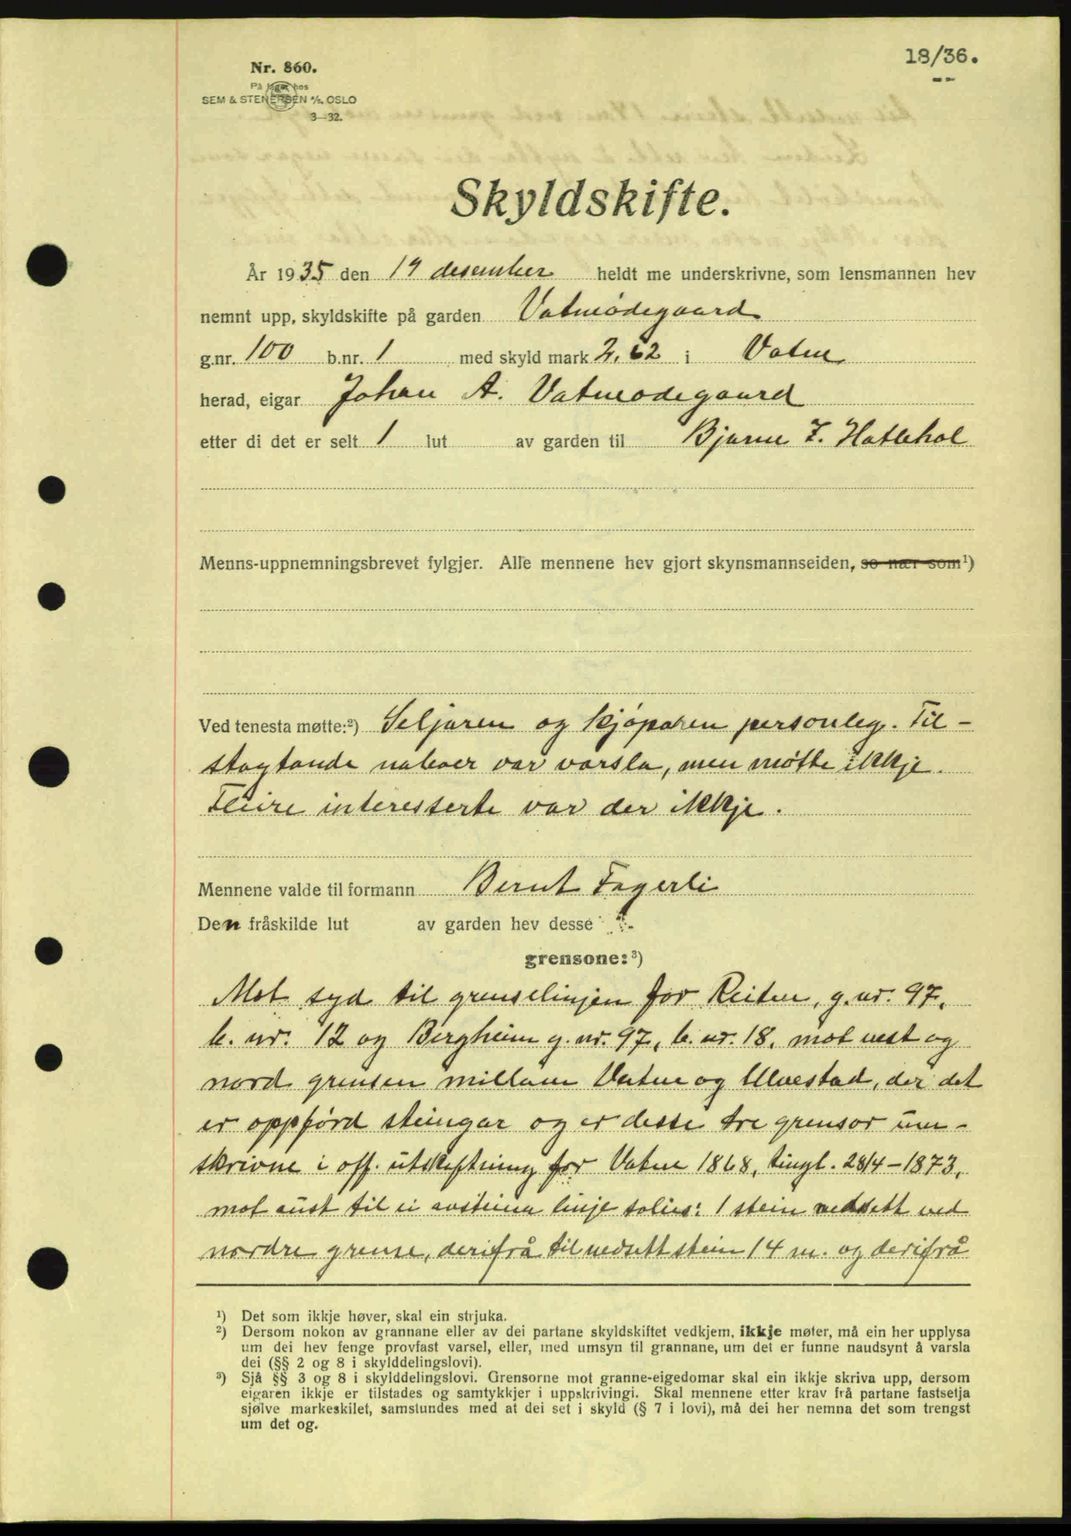 18/36.
Nr. 860.
På lager hos
SEM & STENERSEN A/S, OSLO
3—32.
Skyldskifte.
År 1935 den 19 desember heldt me underskrivne, som lensmannen hev
nemnt upp, skyldskifte på garden Vatneødegaard
g.nr. 100 b.nr. 1 med skyld mark 2,62 i Vatne
herad, eigar Johan A. Vatneødegaard
etter di det er selt 1 lut av garden til Bjarne Z. Hatlehol
Menns-uppnemningsbrevet fylgjer. Alle mennene hev gjort skynsmannseiden, so nær som¹)
Ved tenesta møtte:²) Seljaren og kjøparen personleg. Til-
støytande naboer var varsla, men møtte ikkje.
Fleire interesserte var der ikkje.
Mennene valde til formann Bernt Fagerli
Den fråskilde lut av garden hev desse
grensone:³)
Mot syd til grenselinjen for Reiten, g.nr. 97,
b. nr. 12 og Bergheim g. nr. 97, b. nr. 18, mot vest og
nord grensen millom Vatne og Ulvestad, der det
er oppførd steingar og er desse tre grensor um-
skrivne i off. utskiftning for Vatne 1868, tingl. 28/4-1873,
mot aust til ei avsteina linje solies: 1 stein nedsett ved
nordre grense, derifrå til nedsett stein 14 m. og derifrå
¹) Det som ikkje høver, skal ein strjuka.
²) Dersom nokon av grannane eller av dei partane skyldskiftet vedkjem, ikkje møter, må ein her upplysa
um dei hev fenge provfast varsel, eller, med umsyn til grannane, um det er funne naudsynt å varsla
dei (§§ 2 og 8 i skylddelingslovi).
³) Sjå §§ 3 og 8 i skylddelingslovi. Grensorne mot granne-eigedomar skal ein ikkje skriva upp, dersom
eigaren ikkje er tilstades og samtykkjer i uppskrivingi. Skal mennene etter krav frå partane fastsetja
sjølve markeskilet, samstundes med at dei set i skyld (§ 7 i lovi), må dei her nemna det som trengst
um det og.